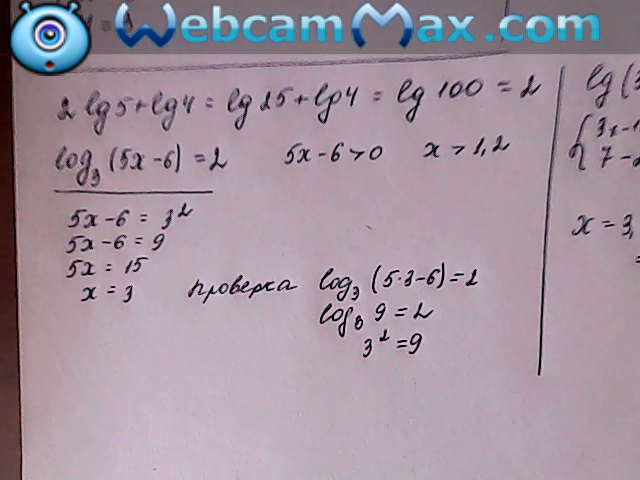 WebcamMax.com
2 lg5 + lg4 = lg 25 + lg4 = lg 100 = 2
log₃ (5x-6) = 2 5x-6 > 0 x > 1,2
5x-6 = 3²
5x-6 = 9
5x = 15
x = 3
Проверка log₃ (5·3-6) = 2
log₃ 9 = 2
3² = 9
lg (3
{ 3x-1
7-2
x = 3,
=